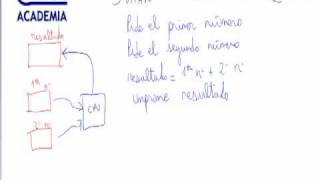 ACADEMIA
resultado
Pide el primer número
Pide el segundo número
resultado = 1er nº + 2º nº
imprime resultado
1er nº
CPU
2º nº